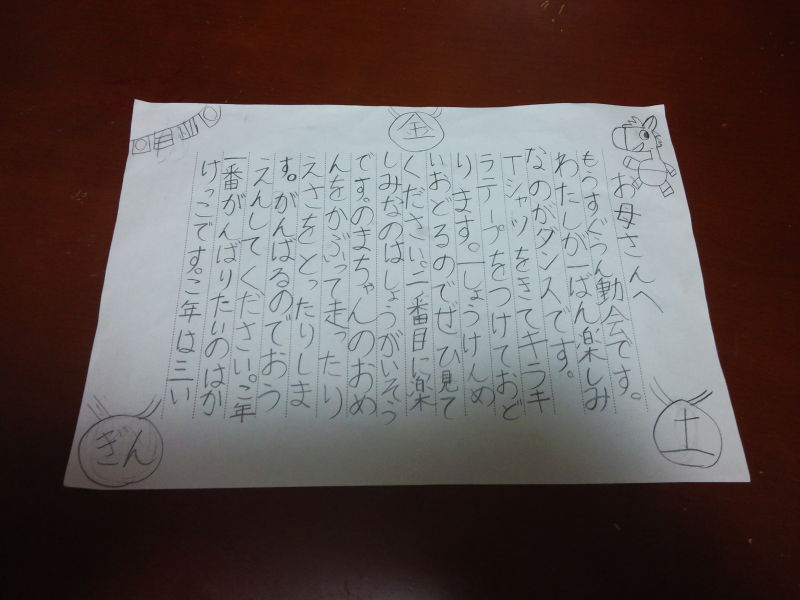 お母さんへ
もうすぐうん動会です。
わたしが一ばん楽しみ
なのがダンスです。
Tシャツをきてキラキ
ラテープをつけておど
ります。一しょうけんめ
いおどるのでぜひ見て
ください。二番目に楽
しみなのはしょうがいそう
です。のまちゃんのおめ
んをかぶって走ったり
えさをとったりしま
す。がんばるのでおう
えんしてください。こ年
一番がんばりたいのはか
けっこです。こ年は三い
金
土
ぎん